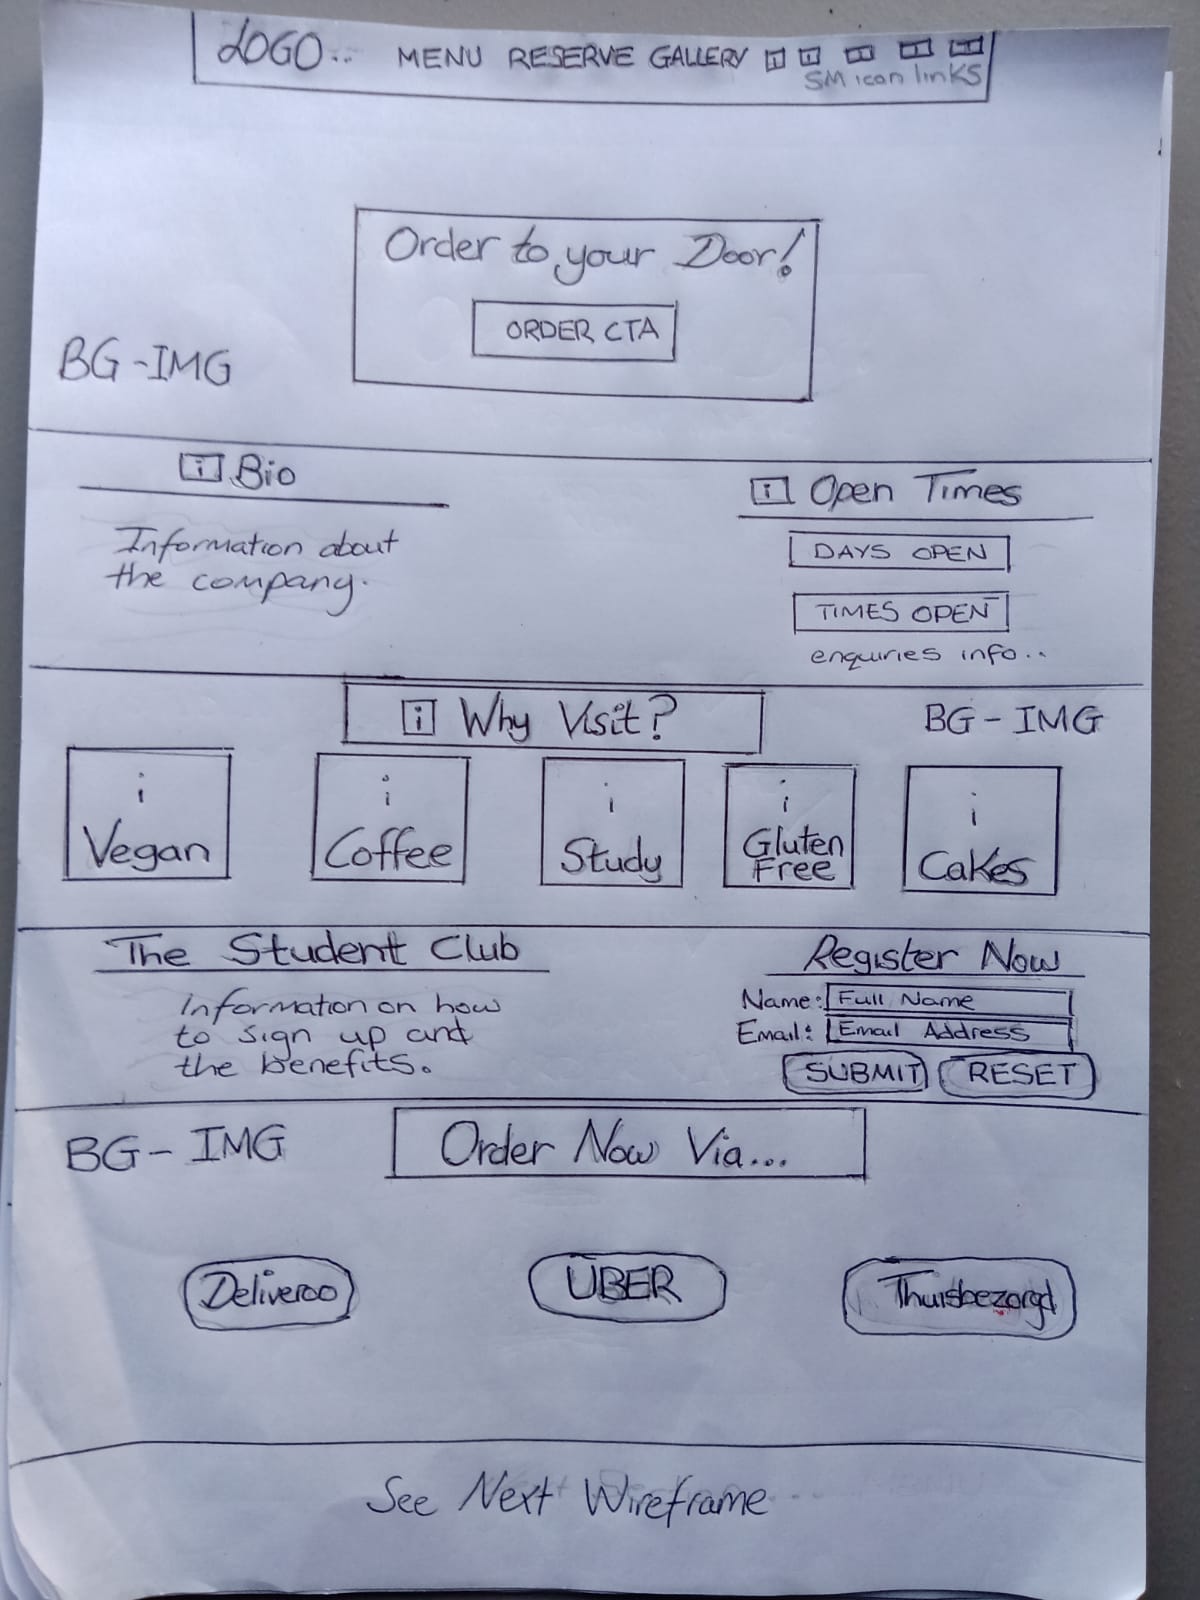 LOGO... MENU RESERVE GALLERY i i i i i
SM icon links
Order to your Door!
ORDER CTA
BG-IMG
i Bio
Information about
the company.
i Open Times
DAYS OPEN
TIMES OPEN
enquiries info...
i Why Visit?
BG-IMG
i
Vegan
i
Coffee
i
Study
i
Gluten
Free
i
Cakes
The Student Club
Information on how
to sign up and
the benefits.
Register Now
Name: Full Name
Email: Email Address
SUBMIT RESET
BG-IMG
Order Now Via...
Deliveroo
UBER
Thuisbezorgd
See Next Wireframe...